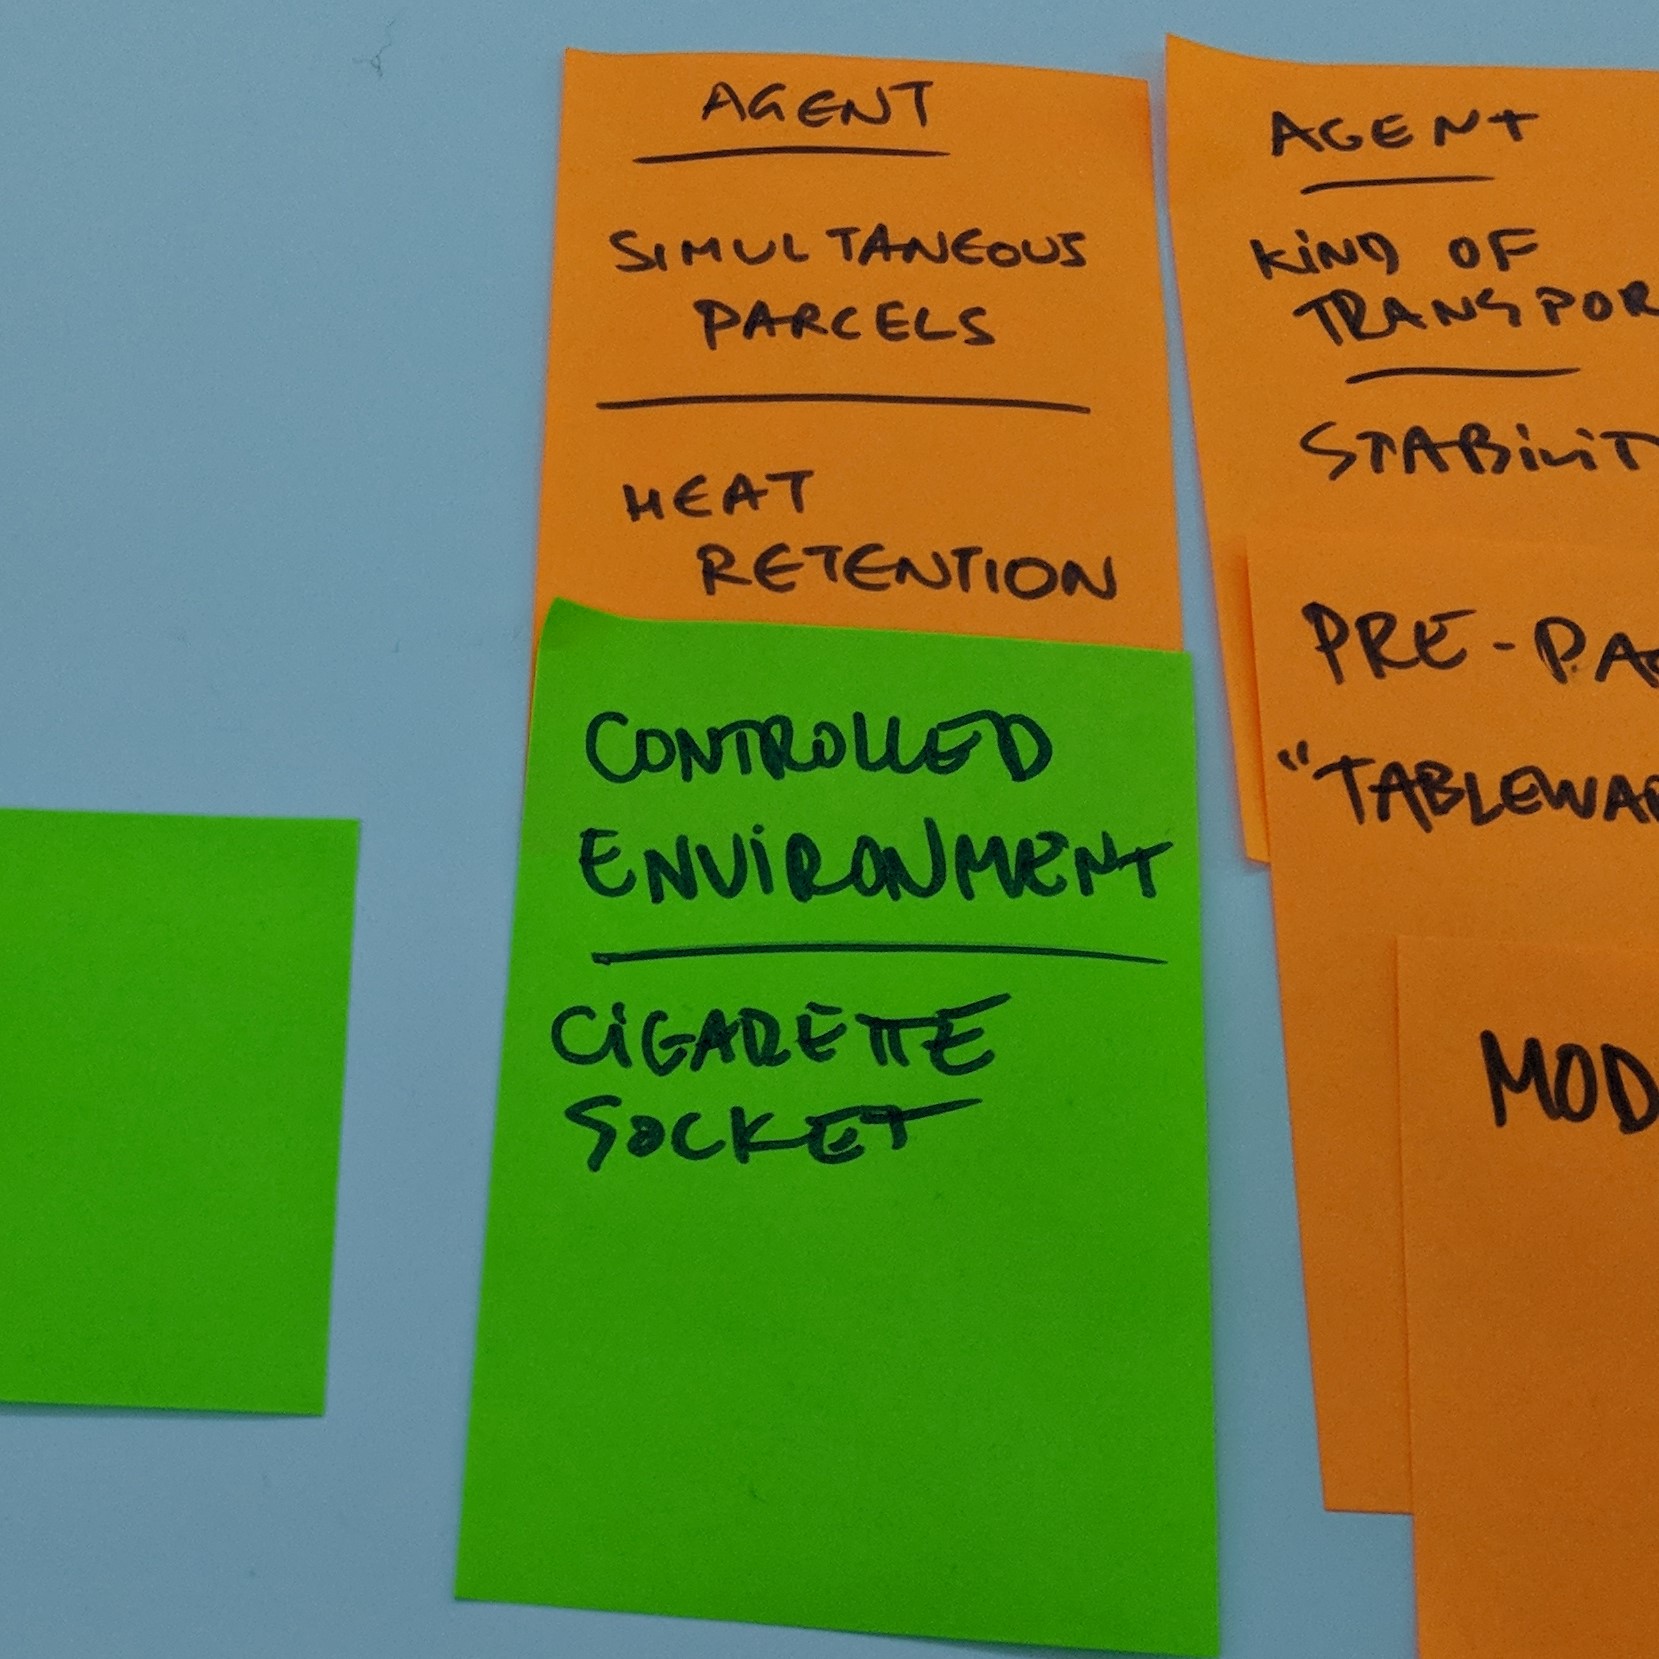 AGENT
SIMULTANEOUS
PARCELS
HEAT
RETENTION
CONTROLLED
ENVIRONMENT
CIGARETTE
SOCKET
AGENT
KIND OF
TRANSPOR
STABILIT
PRE-PA
"TABLEWAR
MOD